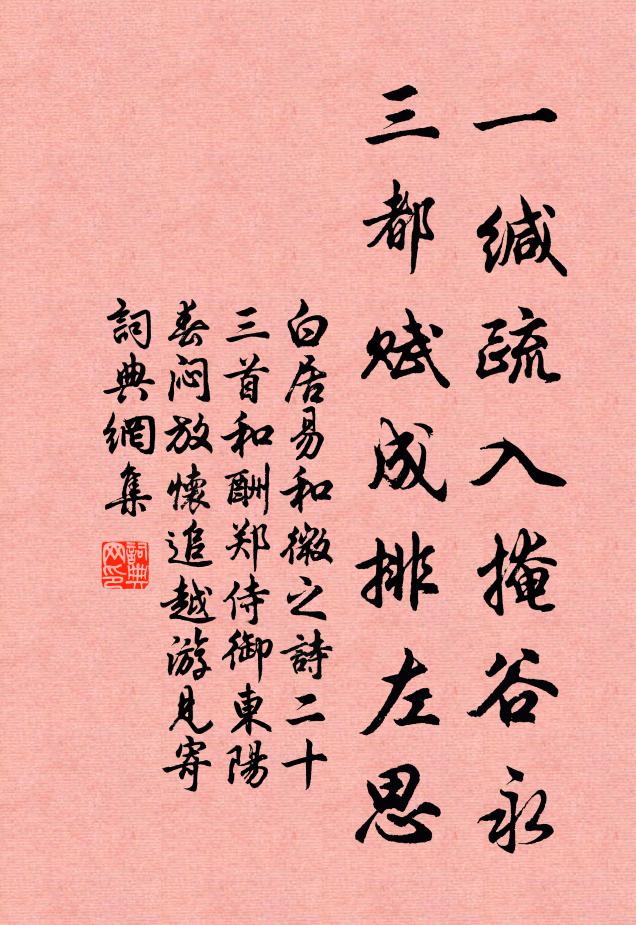 一緘疏入掩谷永
三都賦成排左思
白居易和微之詩二十
三首和酬郑侍御東陽
春闷放懷追越游見寄
詞典網集
詞典
网印